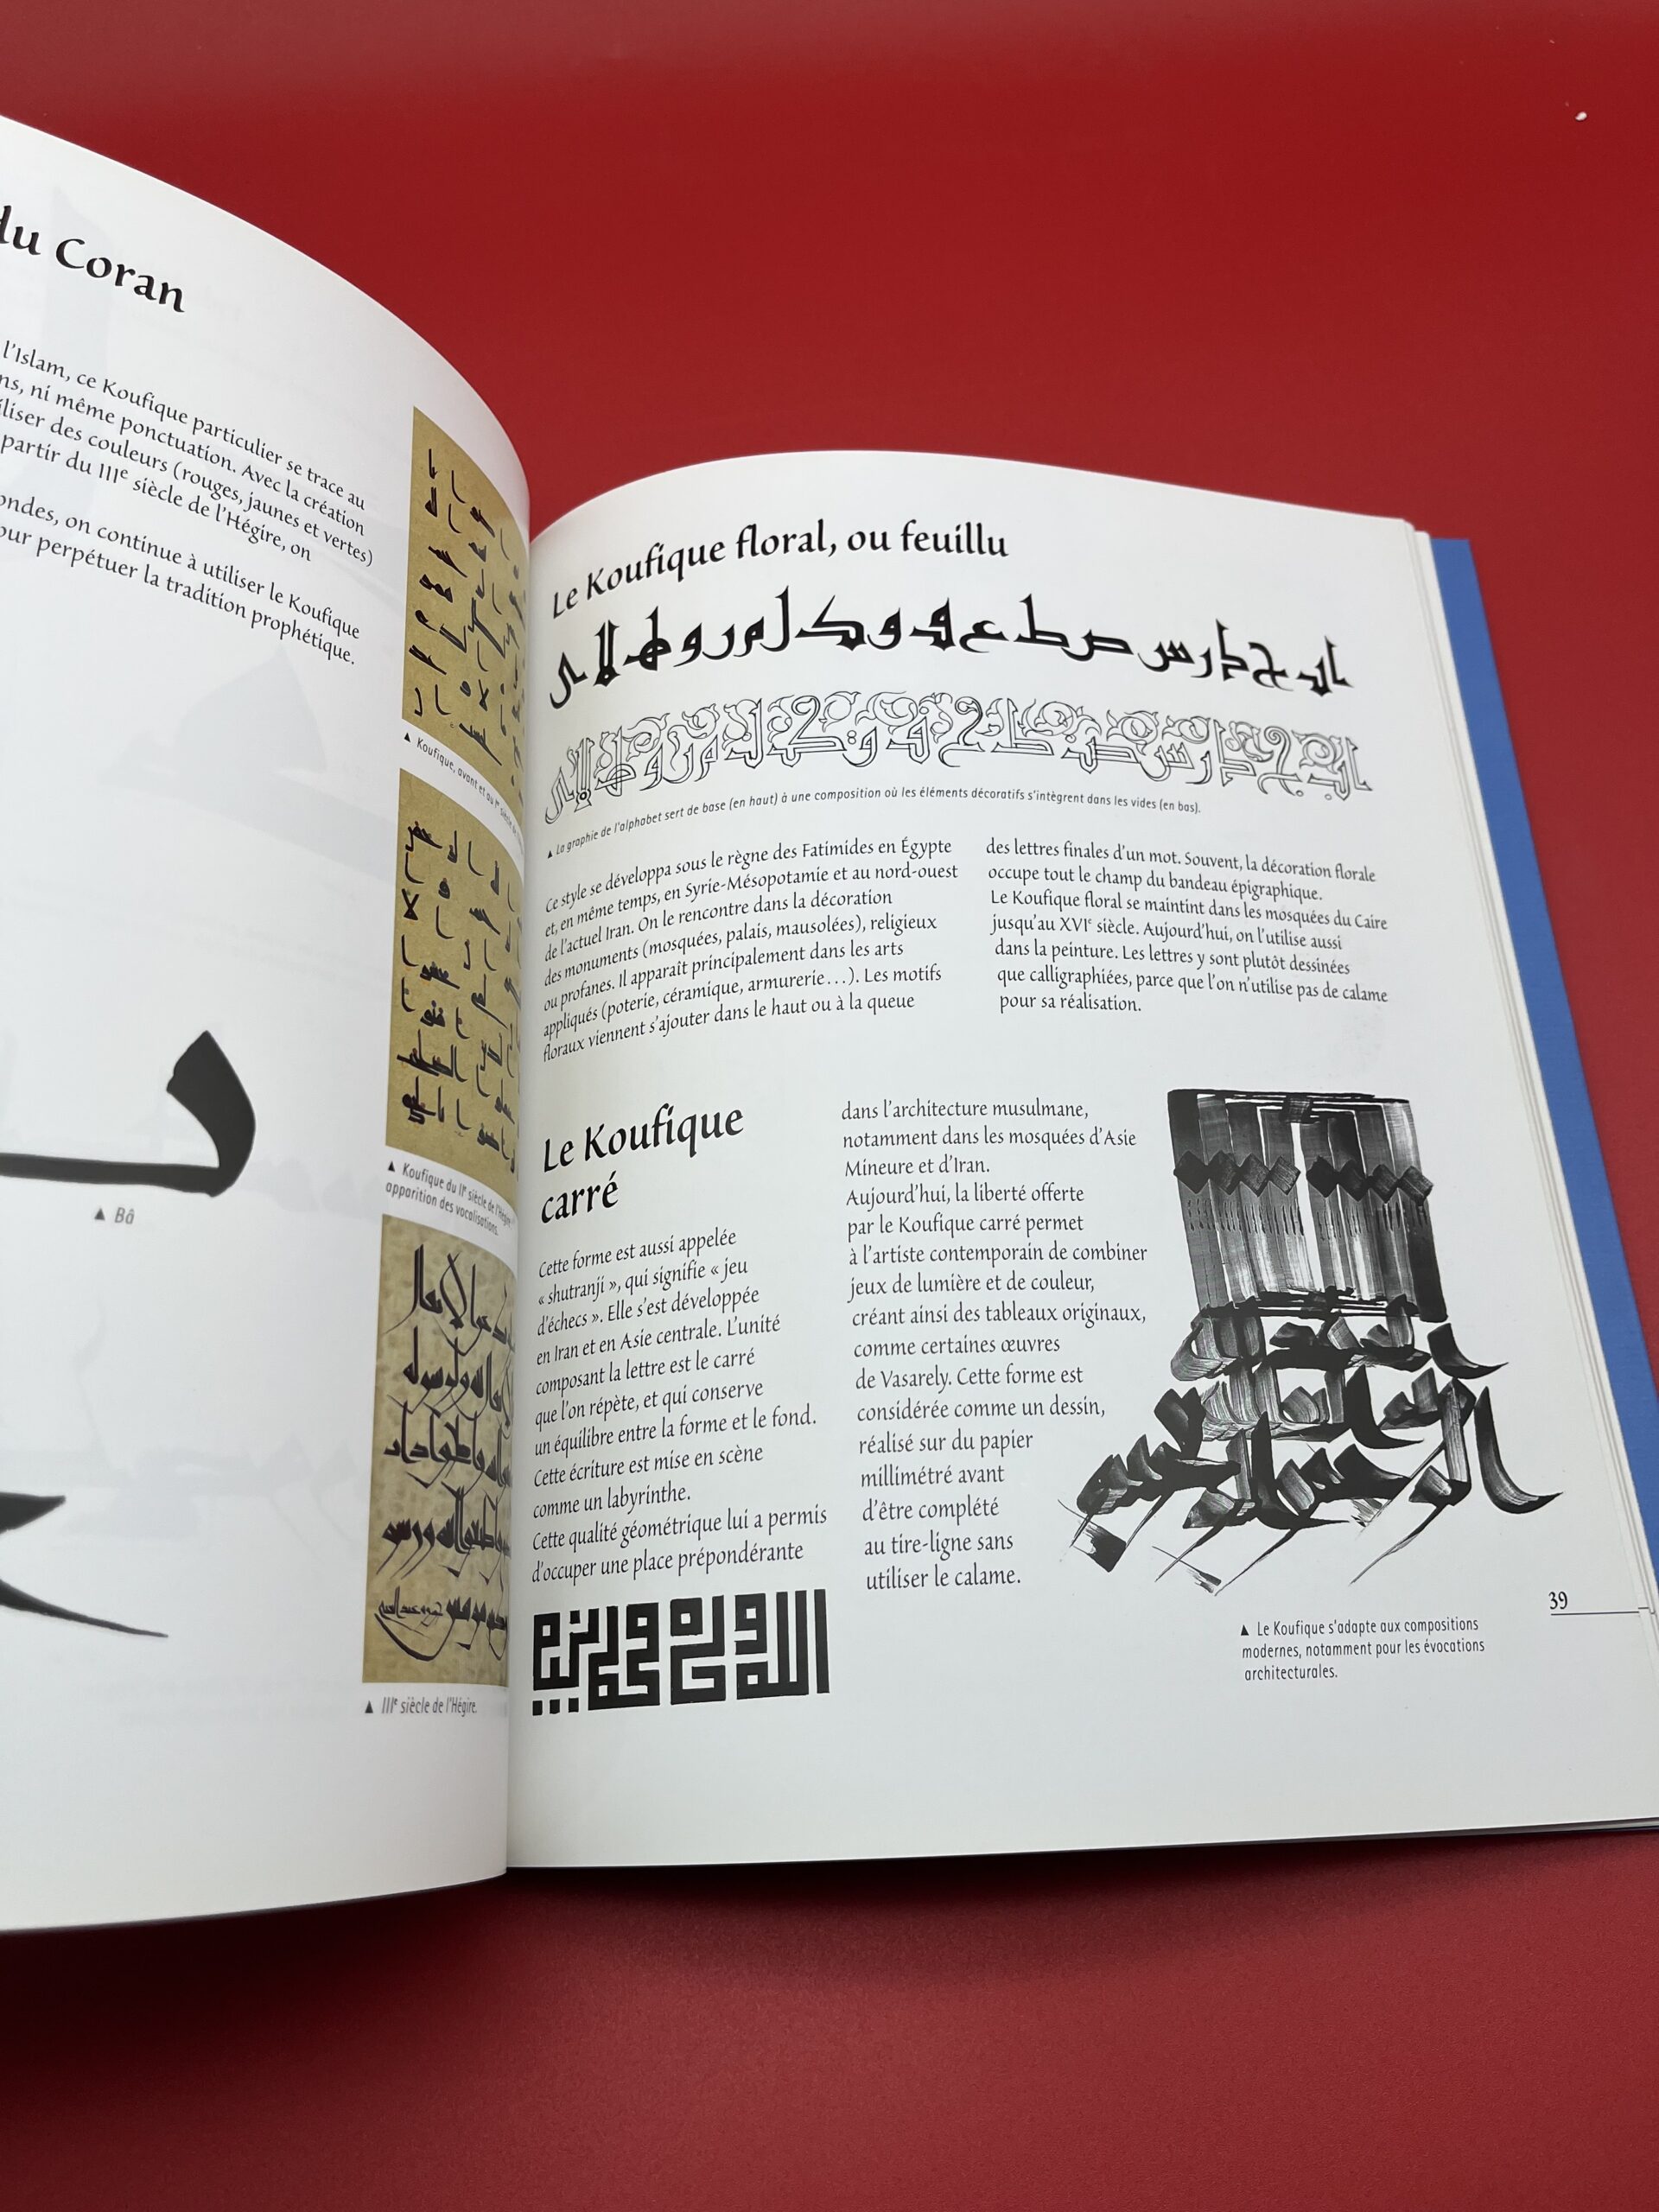 du Coran
l'Islam, ce Koufique particulier se trace au
ns, ni même ponctuation. Avec la création
iliser des couleurs (rouges, jaunes et vertes)
partir du IIIe siècle de l'Hégire, on
ondes, on continue à utiliser le Koufique
our perpétuer la tradition prophétique.
▲ Koufique, avant et au Ie siècle
▲ Koufique du IIe siècle de l'Hégire,
apparition des vocalisations.
▲ IIIe siècle de l'Hégire.
▲ Bâ
Le Koufique floral, ou feuillu
▲ La graphie de l'alphabet sert de base (en haut) à une composition où les éléments décoratifs s'intègrent dans les vides (en bas).
Ce style se développa sous le règne des Fatimides en Égypte
et, en même temps, en Syrie-Mésopotamie et au nord-ouest
de l'actuel Iran. On le rencontre dans la décoration
des monuments (mosquées, palais, mausolées), religieux
ou profanes. Il apparaît principalement dans les arts
appliqués (poterie, céramique, armurerie…). Les motifs
floraux viennent s'ajouter dans le haut ou à la queue
des lettres finales d'un mot. Souvent, la décoration florale
occupe tout le champ du bandeau épigraphique.
Le Koufique floral se maintint dans les mosquées du Caire
jusqu'au XVIe siècle. Aujourd'hui, on l'utilise aussi
dans la peinture. Les lettres y sont plutôt dessinées
que calligraphiées, parce que l'on n'utilise pas de calame
pour sa réalisation.
Le Koufique
carré
Cette forme est aussi appelée
« shutranji », qui signifie « jeu
d'échecs ». Elle s'est développée
en Iran et en Asie centrale. L'unité
composant la lettre est le carré
que l'on répète, et qui conserve
un équilibre entre la forme et le fond.
Cette écriture est mise en scène
comme un labyrinthe.
Cette qualité géométrique lui a permis
d'occuper une place prépondérante
dans l'architecture musulmane,
notamment dans les mosquées d'Asie
Mineure et d'Iran.
Aujourd'hui, la liberté offerte
par le Koufique carré permet
à l'artiste contemporain de combiner
jeux de lumière et de couleur,
créant ainsi des tableaux originaux,
comme certaines œuvres
de Vasarely. Cette forme est
considérée comme un dessin,
réalisé sur du papier
millimétré avant
d'être complété
au tire-ligne sans
utiliser le calame.
▲ Le Koufique s'adapte aux compositions
modernes, notamment pour les évocations
architecturales.
39